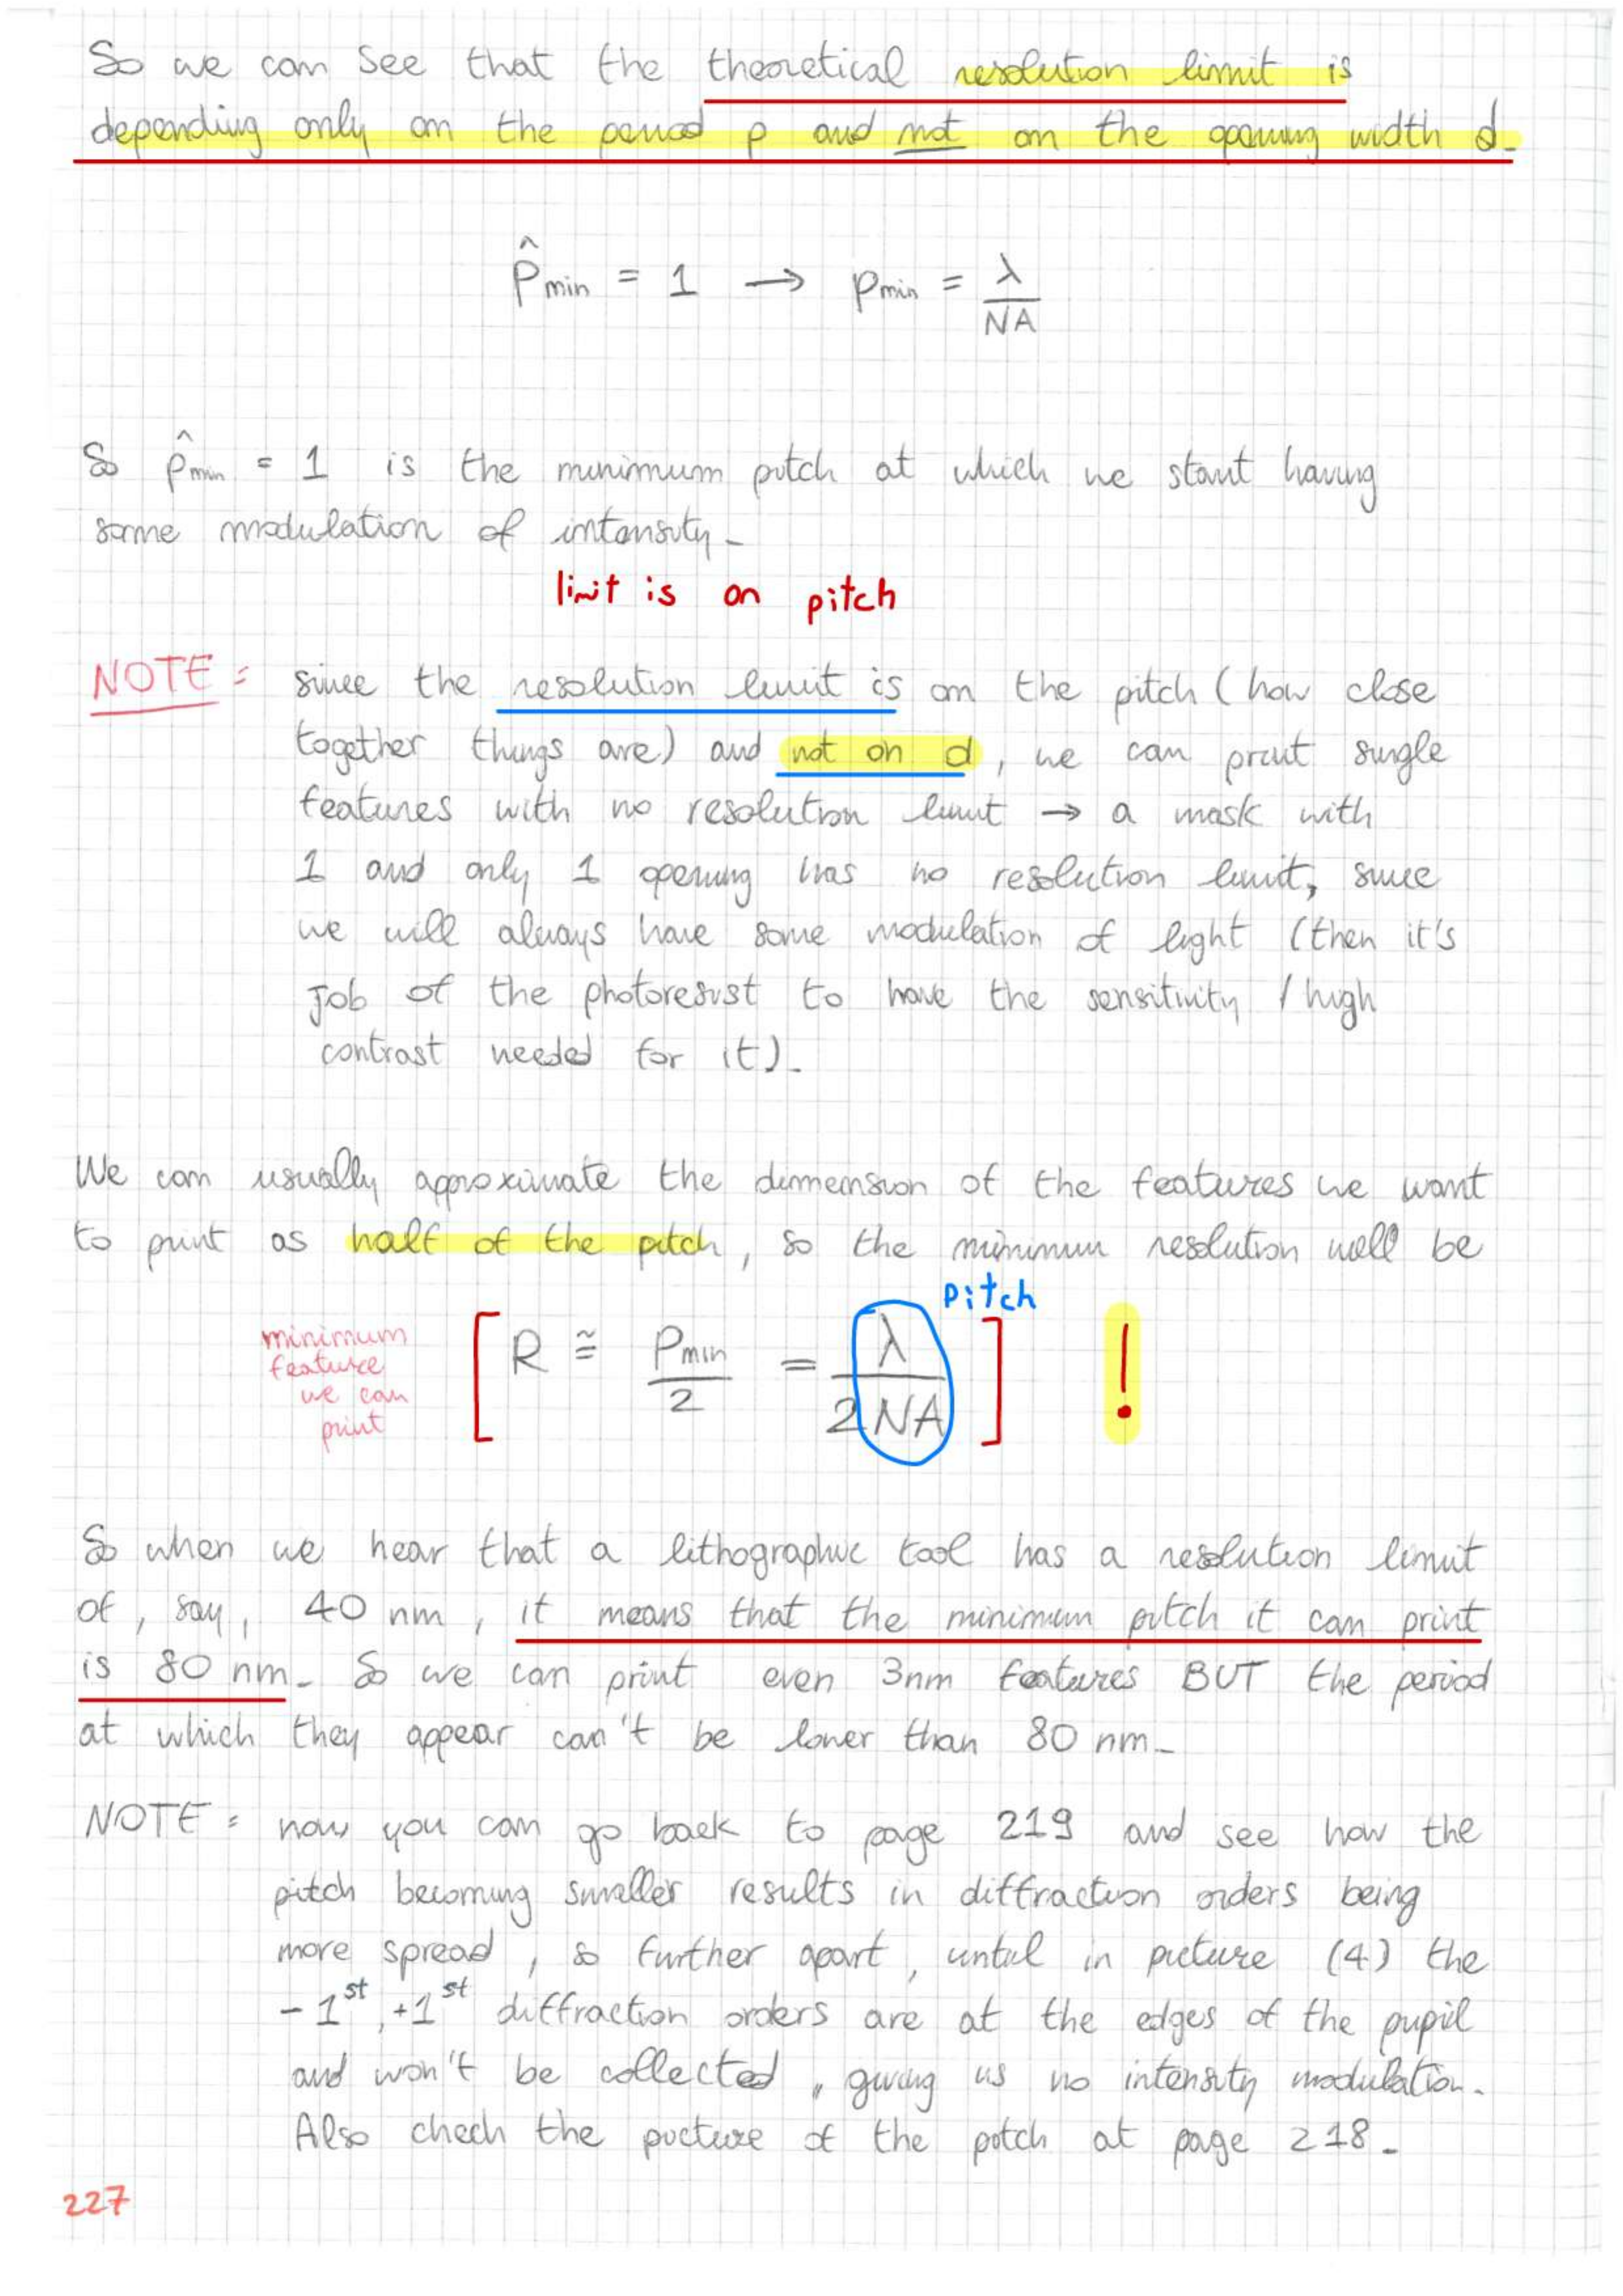 So we can see that the theoretical resolution limit is
depending only on the period p and not on the opening width d.
p̂min = 1 → pmin = λ/NA
So p̂min = 1 is the minimum pitch at which we start having
some modulation of intensity.
limit is on pitch
NOTE: since the resolution limit is on the pitch (how close
together things are) and not on d, we can print single
features with no resolution limit → a mask with
1 and only 1 opening has no resolution limit, since
we will always have some modulation of light (then it's
job of the photoresist to have the sensitivity / high
contrast needed for it).
We can usually approximate the dimension of the features we want
to print as half of the pitch, so the minimum resolution will be
pitch
minimum
feature
we can
print
[R ≅ Pmin/2 = λ/2NA] !
So when we hear that a lithographic tool has a resolution limit
of, say, 40 nm, it means that the minimum pitch it can print
is 80 nm. So we can print even 3nm features BUT the period
at which they appear can't be lower than 80 nm.
NOTE: now you can go back to page 219 and see how the
pitch becoming smaller results in diffraction orders being
more spread, so further apart, until in picture (4) the
-1st, +1st diffraction orders are at the edges of the pupil
and won't be collected, giving us no intensity modulation.
Also chech the picture of the pitch at page 218.
227